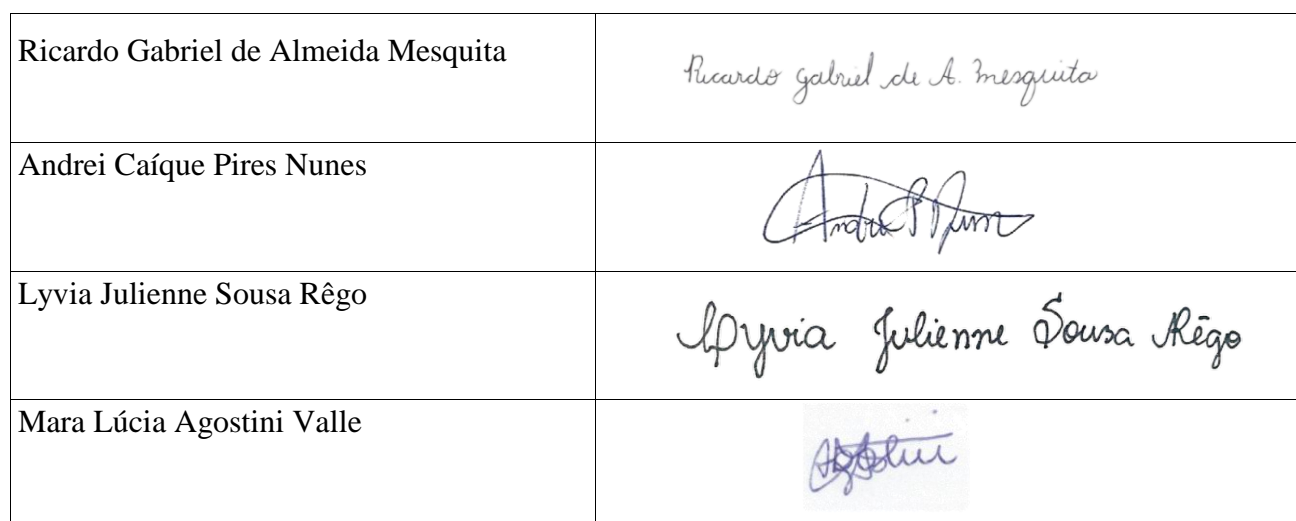 Ricardo Gabriel de Almeida Mesquita
Ricardo Gabriel de A. Mesquita
Andrei Caíque Pires Nunes
Andrei P Nunes
Lyvia Julienne Sousa Rêgo
Lyvia Julienne Sousa Rêgo
Mara Lúcia Agostini Valle
Agostini